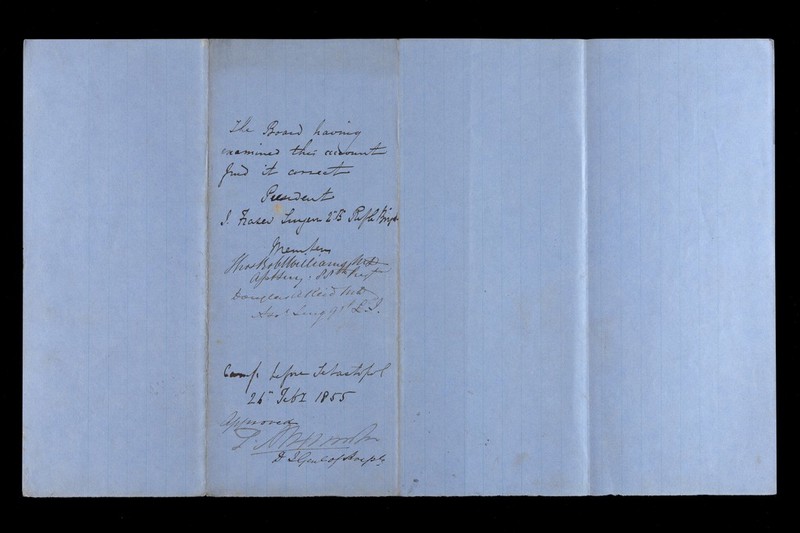 The Board having
examined this account
find it correct
President
J. Fraser Surgeon 2 B Rifle Brig
Members
Thos Williams MD
Asst Surg. 88th Regt
Douglas A Reid MD
Asst Surg 90th L.I.
Camp before Sebastopol
26th Feb 1855
Approved
D I Genl of Hospls